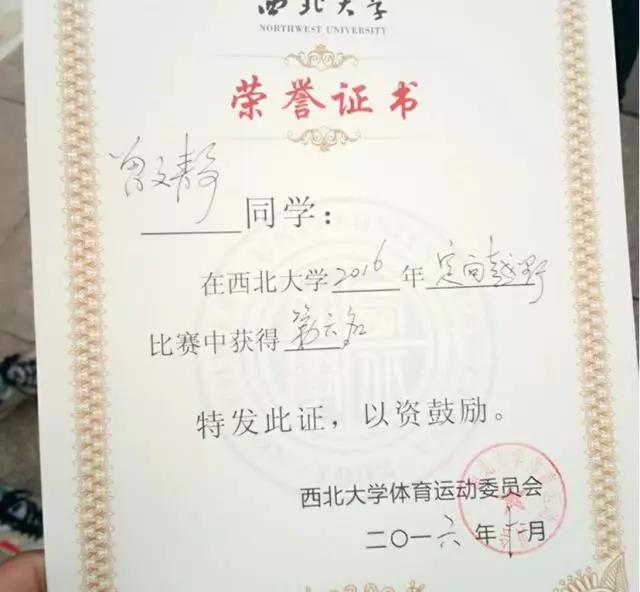 西北大学
NORTHWEST UNIVERSITY
荣誉证书
曾文静同学：
在西北大学2016年定向越野
比赛中获得第六名
特发此证，以资鼓励。
西北大学体育运动委员会
二〇一六年十二月